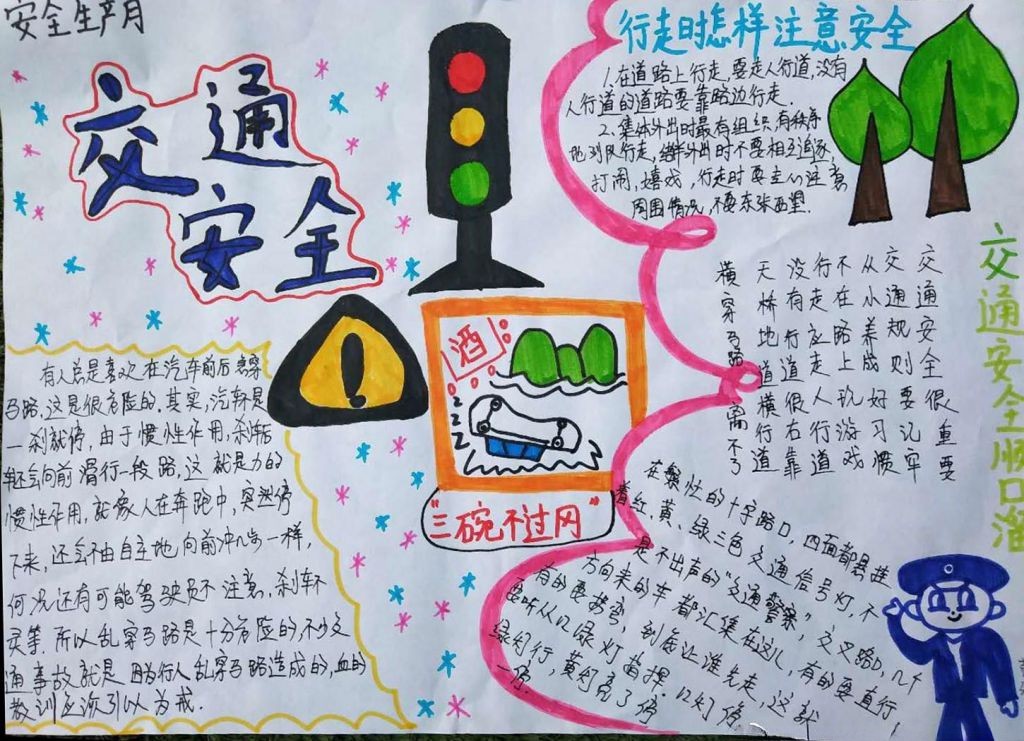 安全生产月
交通
安全
行走时怎样注意安全
1.在道路上行走,要走人行道,没有
人行道的道路要靠路边行走.
2.集体外出时最有组织有秩序
地列队行走,结伴外出时不要相互追逐,
打闹,嬉戏,行走时要走心注意
周围情况,不要东张西望.
交通安全顺口溜
交通安全很重要
交通规则要记牢
从小养成好习惯
不在路上玩游戏
行走应走人行道
没有行道很右靠
天桥地道横行道
横穿马路需不了
酒
ZZZZ
"三碗不过网"
有人总是喜欢在汽车前后急穿
马路,这是很危险的.其实,汽车不是
一刹就停,由于惯性作用,刹车后
车还会向前滑行一段路,这就是力的
惯性作用,就像人在奔跑中,突然停
下来,还会不由自主地向前冲几步一样,
何况还有可能驾驶员不注意,刹车不
灵等.所以乱穿马路是十分危险的,不少交
通事故就是因为行人乱穿马路造成的,血的
教训应该引以为戒.
在繁忙的十字路口,四面都悬挂
着红、黄、绿三色交通信号灯,不
是不出声的"交通警察",交叉路口,几个
方向来的车都汇集在这儿,有的要直行,
有的要拐弯,到底让谁先走,这就
要听从红绿灯指挥.红灯停,
绿灯行,黄灯亮了停
一停.